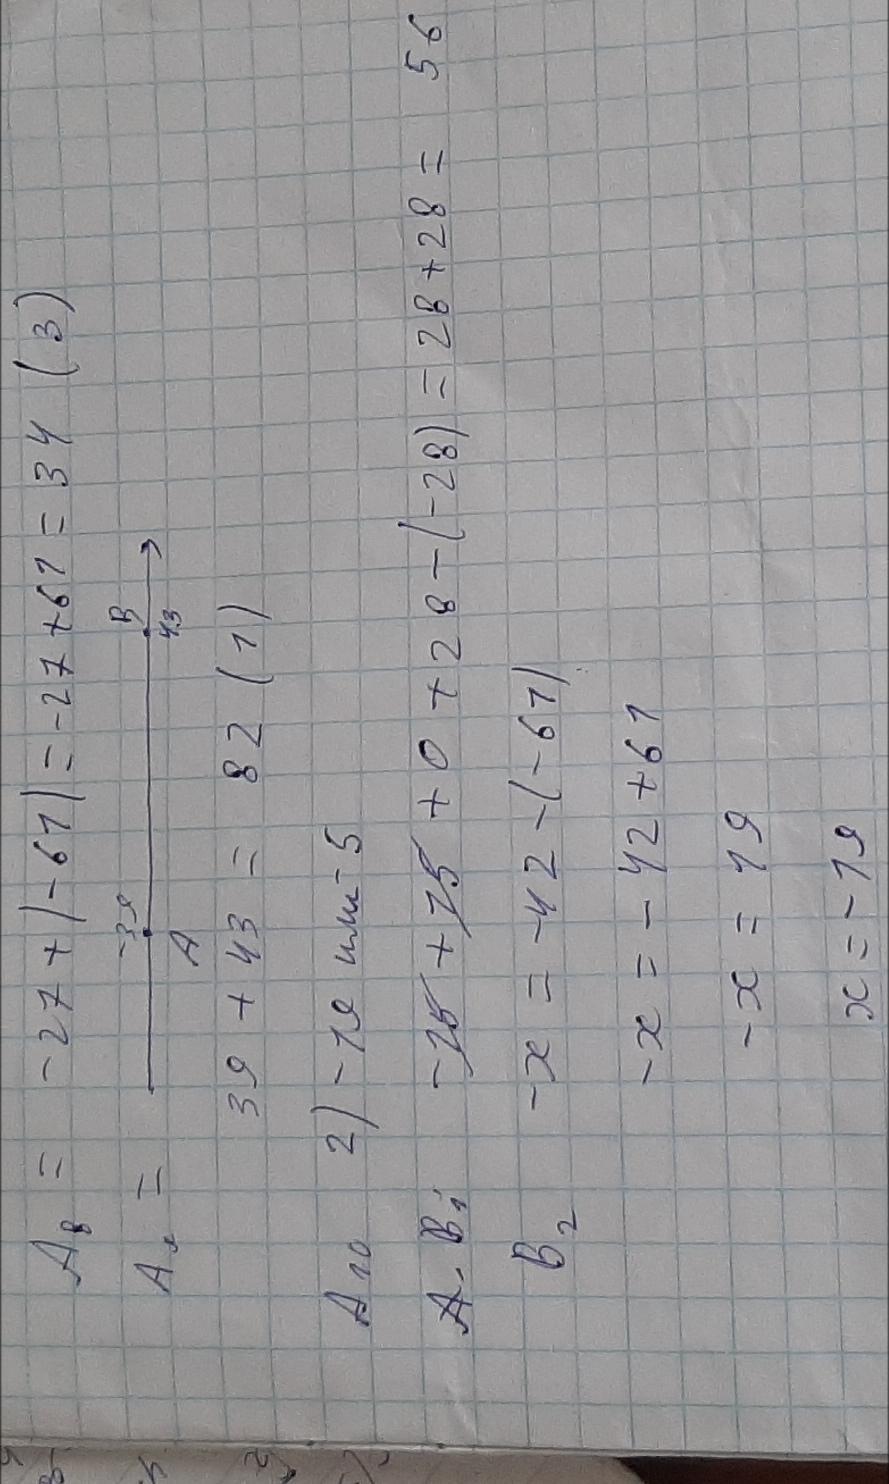 A₈ = -27 + |-61| = -27 + 61 = 34 (3)
A₉ =
-39 B
A 43
39 + 43 = 82 (1)
A₁₀ 2) -19 или -5
B₁. -25 + 25 + 0 + 28 - (-28) = 28 + 28 = 56
B₂ -x = -42 - (-61)
-x = -42 + 61
-x = 19
x = -19